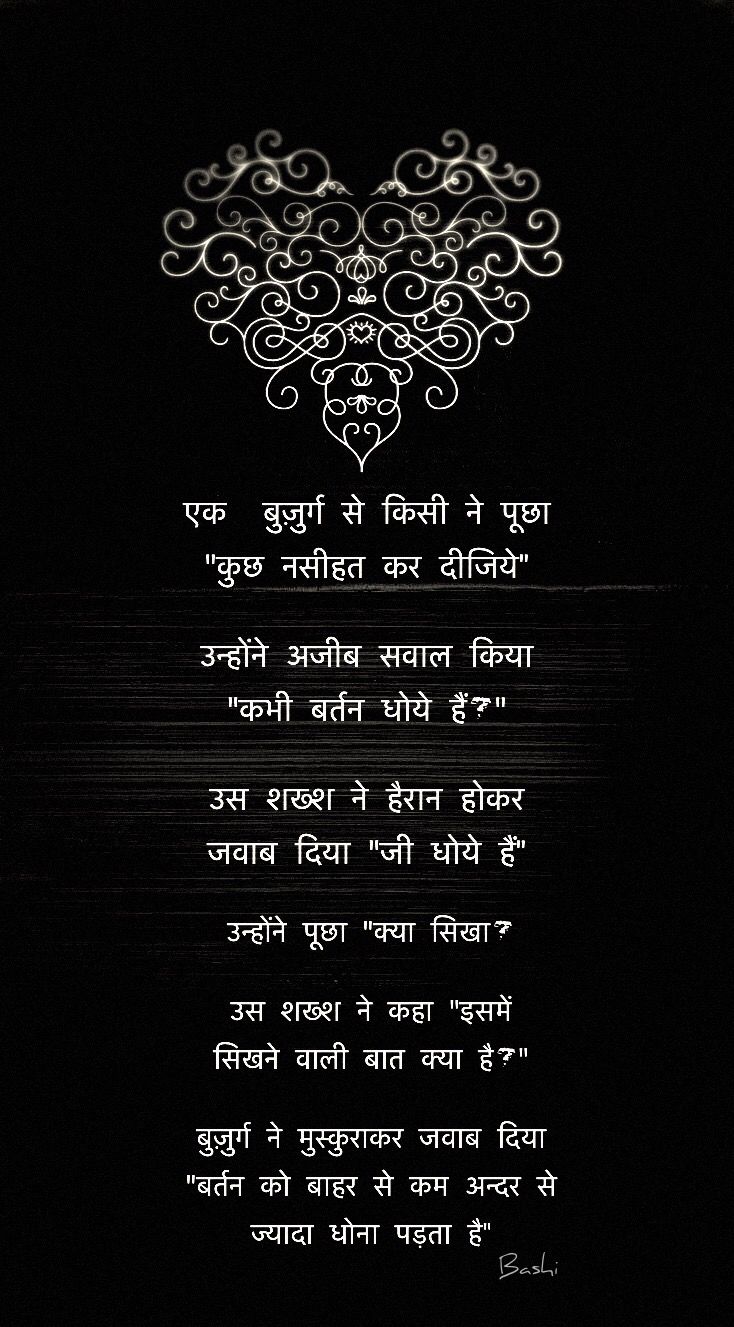 एक बुज़ुर्ग से किसी ने पूछा
"कुछ नसीहत कर दीजिये"
उन्होंने अजीब सवाल किया
"कभी बर्तन धोये हैं?"
उस शख्श ने हैरान होकर
जवाब दिया "जी धोये हैं"
उन्होंने पूछा "क्या सिखा?
उस शख्श ने कहा "इसमें
सिखने वाली बात क्या है?"
बुज़ुर्ग ने मुस्कुराकर जवाब दिया
"बर्तन को बाहर से कम अन्दर से
ज्यादा धोना पड़ता है"
Bashi